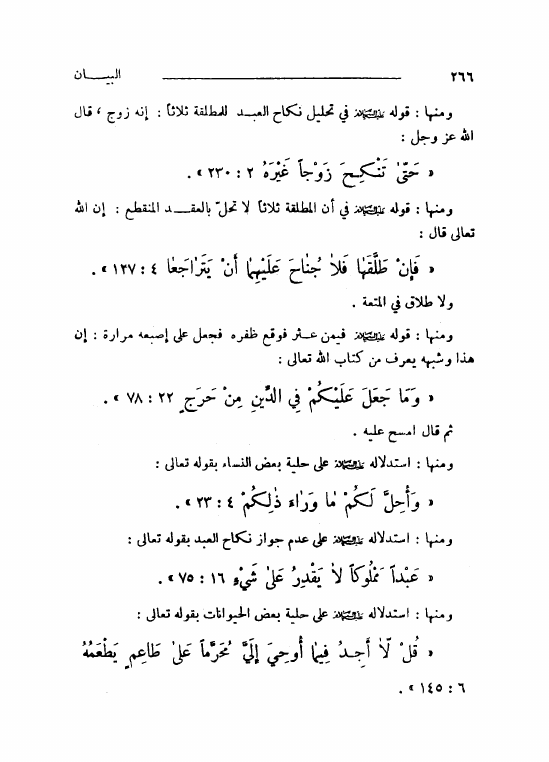 ٢٦٦ البيـــان
ومنها : قوله عليه السلام في تحليل نكاح العبـد للمطلقة ثلاثاً : إنه زوج ، قال
الله عز وجل :
« حَتّىٰ تَنْكِحَ زَوْجاً غَيْرَهُ ٢ : ٢٣٠ » .
ومنها : قوله عليه السلام في أن المطلقة ثلاثاً لا تحلّ بالعقـــد المنقطع : إن الله
تعالى قال :
« فَإِنْ طَلَّقَهٰا فَلاٰ جُنٰاحَ عَلَيْهِمٰا أَنْ يَتَرٰاجَعٰا ٤ : ١٢٧ » .
ولا طلاق في المتعة .
ومنها : قوله عليه السلام فيمن عـثر فوقع ظفره فجعل على إصبعه مرارة : إن
هذا وشبهه يعرف من كتاب الله تعالى :
« وَمٰا جَعَلَ عَلَيْكُمْ فِي الدِّينِ مِنْ حَرَجٍ ٢٢ : ٧٨ » .
ثم قال امسح عليه .
ومنها : استدلاله عليه السلام على حلية بعض النساء بقوله تعالى :
« وَأُحِلَّ لَكُمْ مٰا وَرٰاءَ ذٰلِكُمْ ٤ : ٢٣ » .
ومنها : استدلاله عليه السلام على عدم جواز نكاح العبد بقوله تعالى :
« عَبْداً مَمْلُوكاً لاٰ يَقْدِرُ عَلىٰ شَيْءٍ ١٦ : ٧٥ » .
ومنها : استدلاله عليه السلام على حلية بعض الحيوانات بقوله تعالى :
« قُلْ لاّٰ أَجِدُ فِيمٰا أُوحِيَ إِلَيَّ مُحَرَّماً عَلىٰ طٰاعِمٍ يَطْعَمُهُ
٦ : ١٤٥ » .